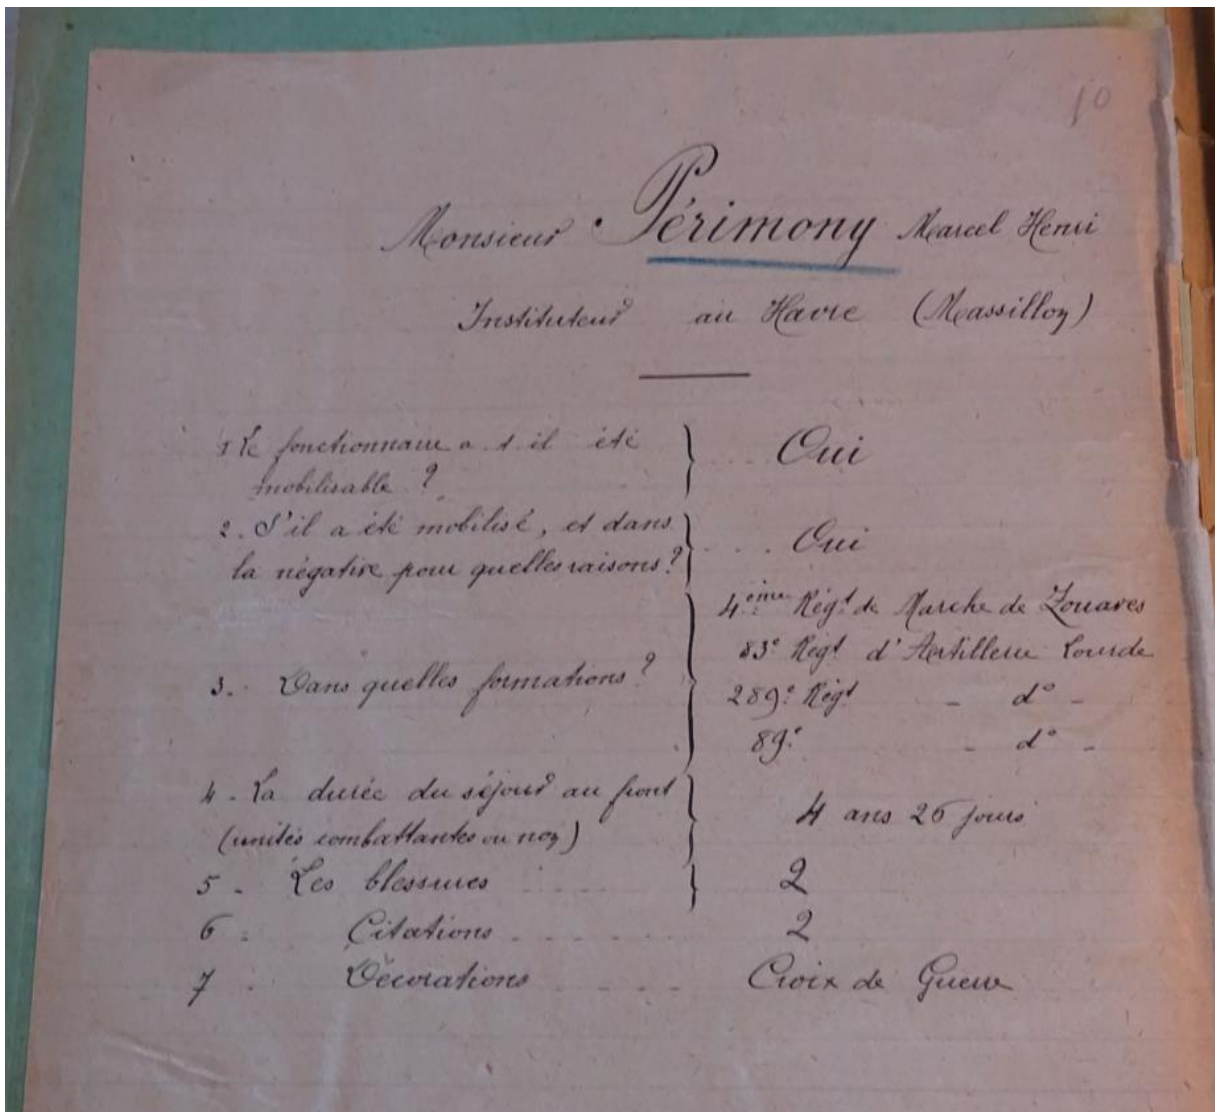 10
Monsieur Périmony Marcel Henri
Instituteur au Havre (Massillon)
1 Le fonctionnaire a-t-il été
mobilisable ?
Oui
2. S'il a été mobilisé, et dans
la négative pour quelles raisons ?
Oui
3. Dans quelles formations ?
4ème Régt de Marche de Zouaves
83e Régt d'Artillerie Lourde
289e Régt - do -
89e - do -
4 - La durée du séjour au front
(unités combattantes ou non)
4 ans 26 jours
5 - Les blessures 2
6 - Citations 2
7 - Décorations Croix de Guerre